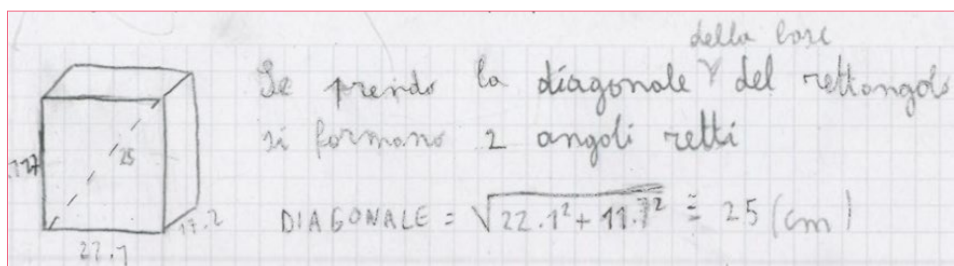 della base
Se prendo la diagonale γ del rettangolo
si formano 2 angoli retti
25
DIAGONALE = √22.1² + 11.7² ≅ 25 (cm)
17.2
22.1